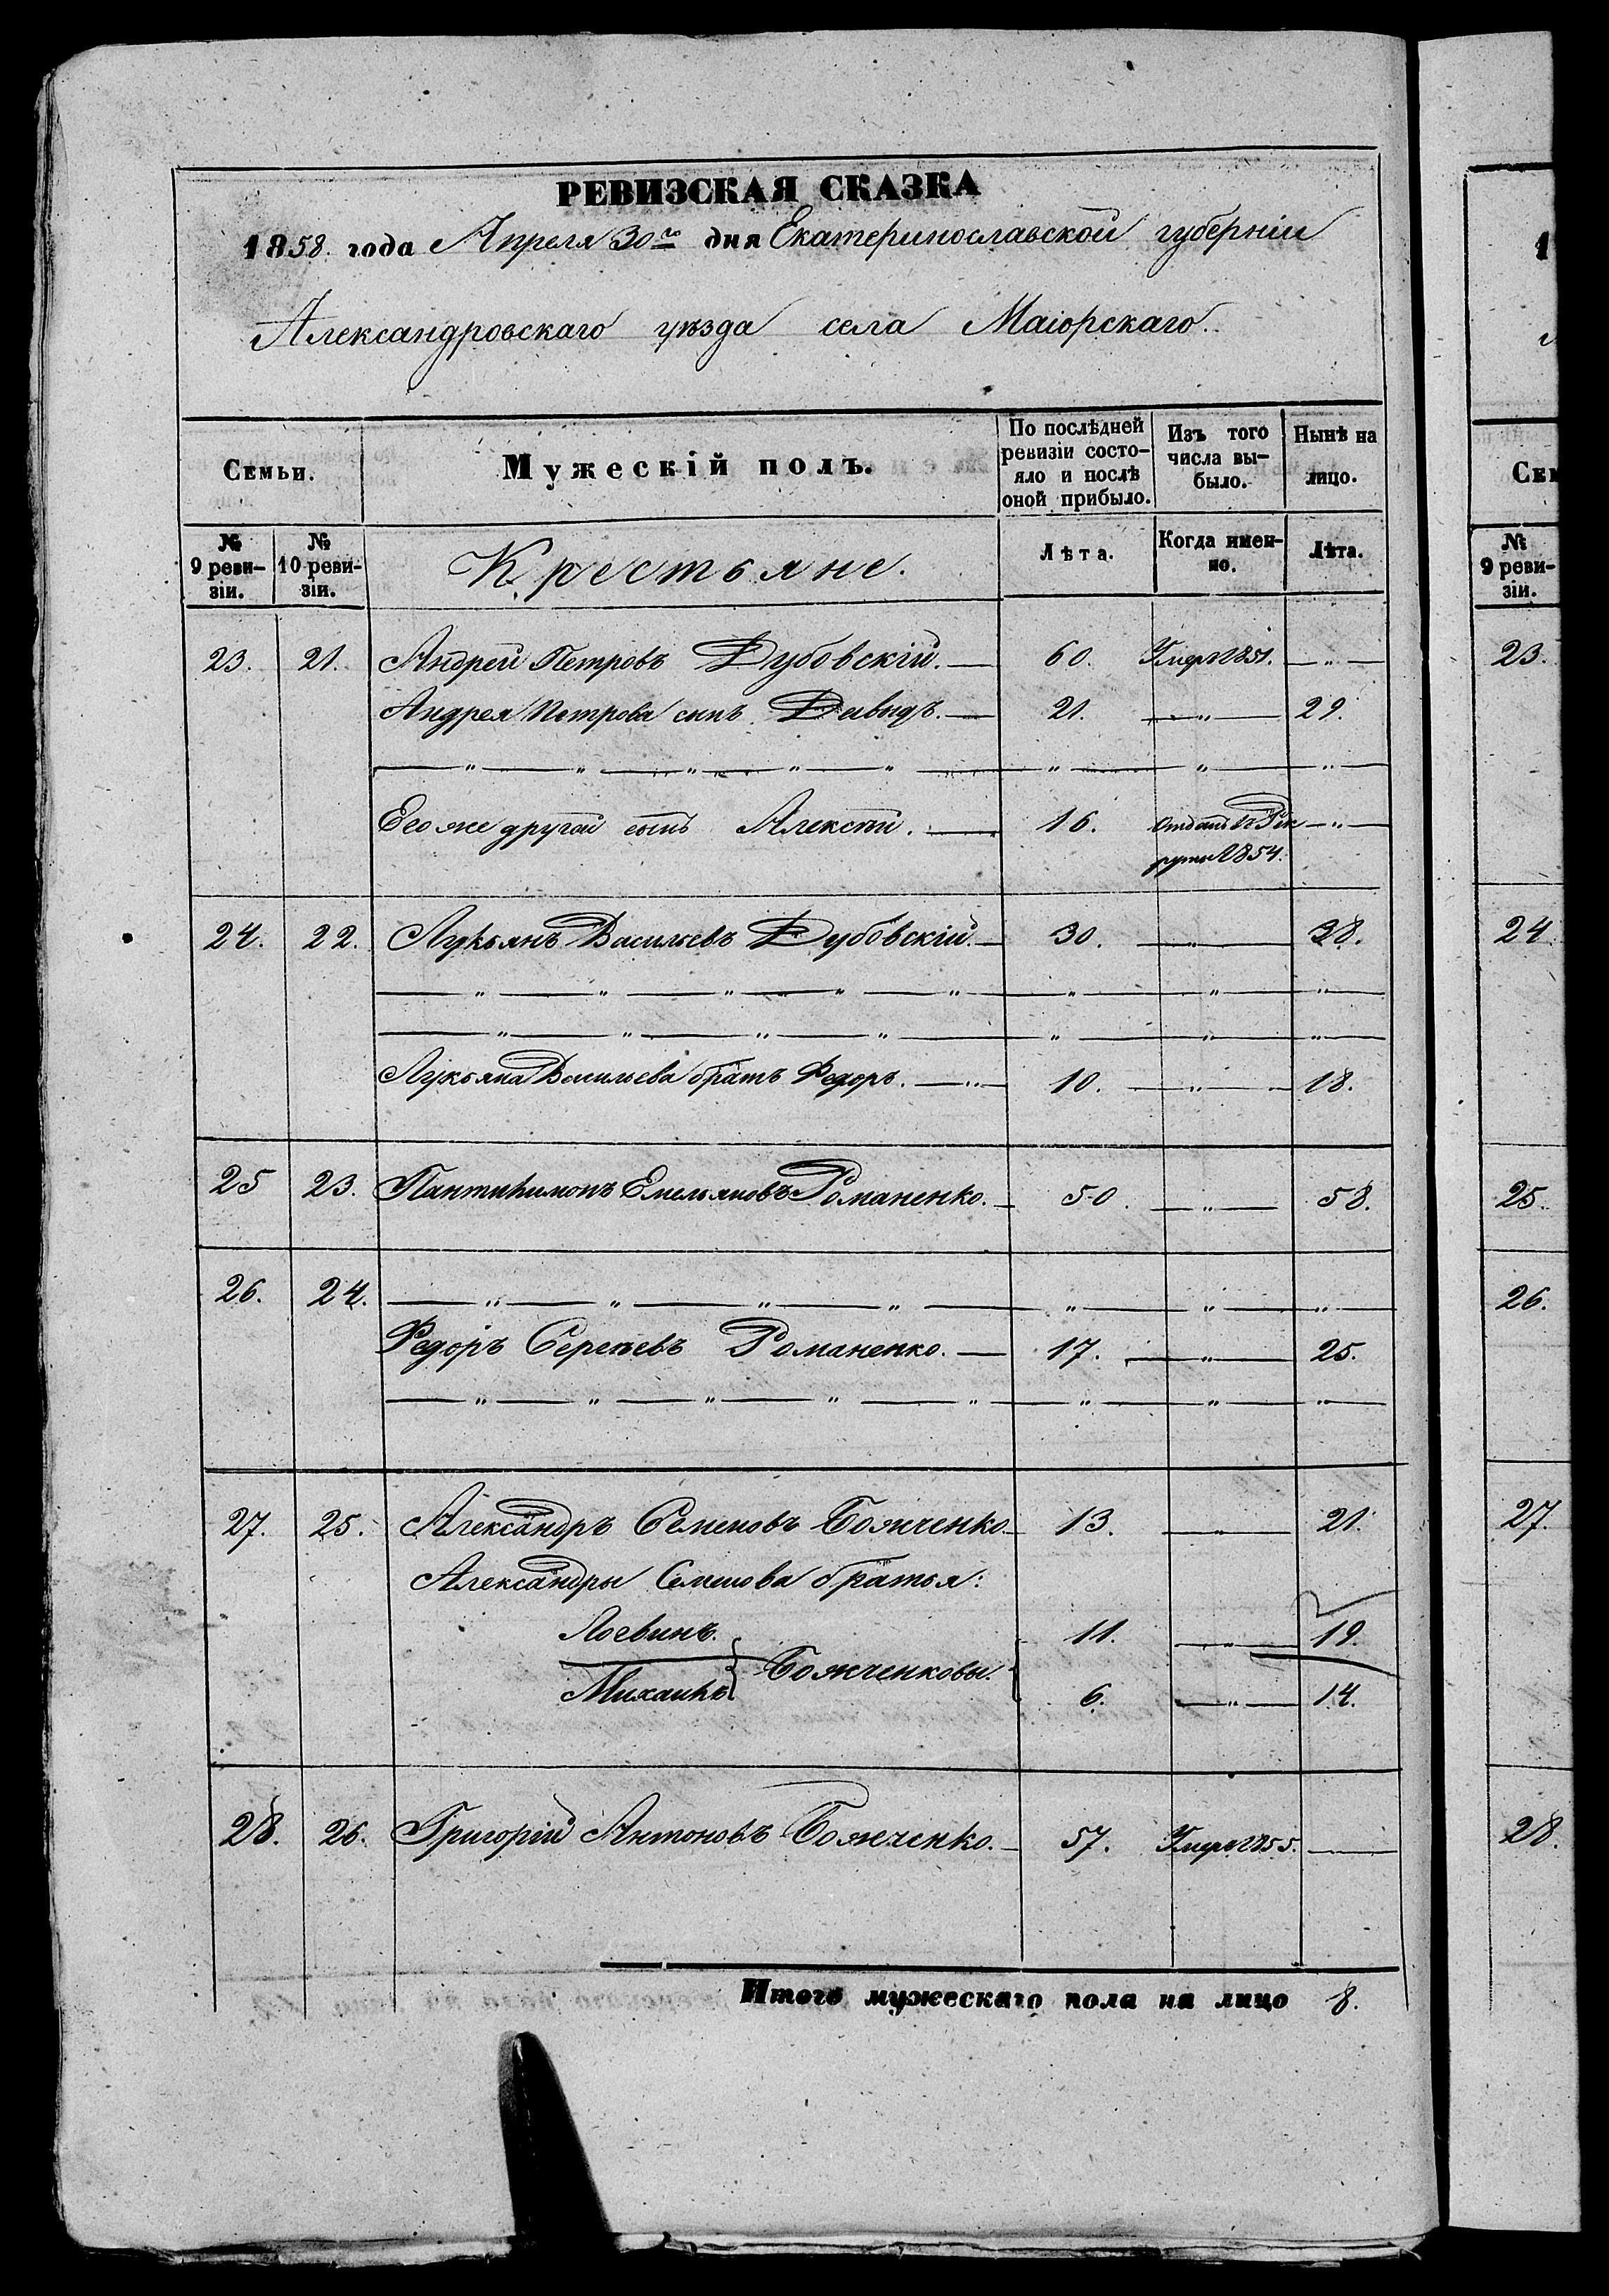 РЕВИЗСКАЯ СКАЗКА
1858. года Апреля 30го дня Екатеринославской губерніи
Александровскаго уѣзда села Маіорскаго.
Семьи. Мужескій полъ. По послѣдней ревизіи состояло и послѣ оной прибыло. Изъ того числа выбыло. Нынѣ на лицо.
№ 9 ревизіи. № 10 ревизіи. Крестьяне. Лѣта. Когда именно. Лѣта.
23. 21. Андрей Петровъ Дубовскій. — 60. Умеръ 1851. — " —
Андрея Петрова сынъ Давыдъ. — 21. — " — 29.
— " — " — " — " — " — " — " — " —
Его же другой сынъ Алексѣй. — 16. Отданъ въ Рек — " —
руты 1854.
24. 22. Лукьянъ Васильевъ Дубовскій. — 30. — " — 38.
— " — " — " — " — " — " — " — " —
— " — " — " — " — " — " — " —
Лукьяна Васильева братъ Федоръ. — " — 10. — " — 18.
25 23. Пантилимонъ Емельяновъ Романенко. — 50. — " — 58.
26. 24. — " — " — " — " — " — " — " —
Федоръ Сергѣевъ Романенко. — 17. — " — 25.
— " — " — " — " — " — " — " — " —
27. 25. Александръ Семеновъ Божченко — 13. — " — 21.
Александры Семенова братья:
Логвинъ. 11. — " — 19.
Божченковы.
Михаилъ 6. — " — 14.
28. 26. Григорій Антоновъ Божченко. — 57. Умеръ 1855. —
Итого мужескаго пола на лицо 8.
1
Сем
№ 9 ревизіи.
23.
24
25.
26.
27.
28.